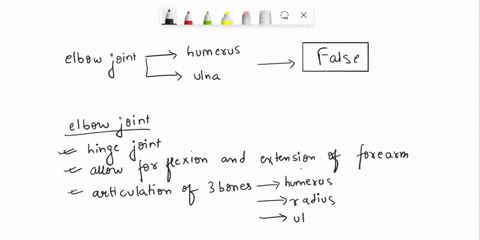 elbow joint humerus
ulna
False
elbow joint
hinge joint
allow for flexion and extension of forearm
articulation of 3 bones humerus
radius
ul